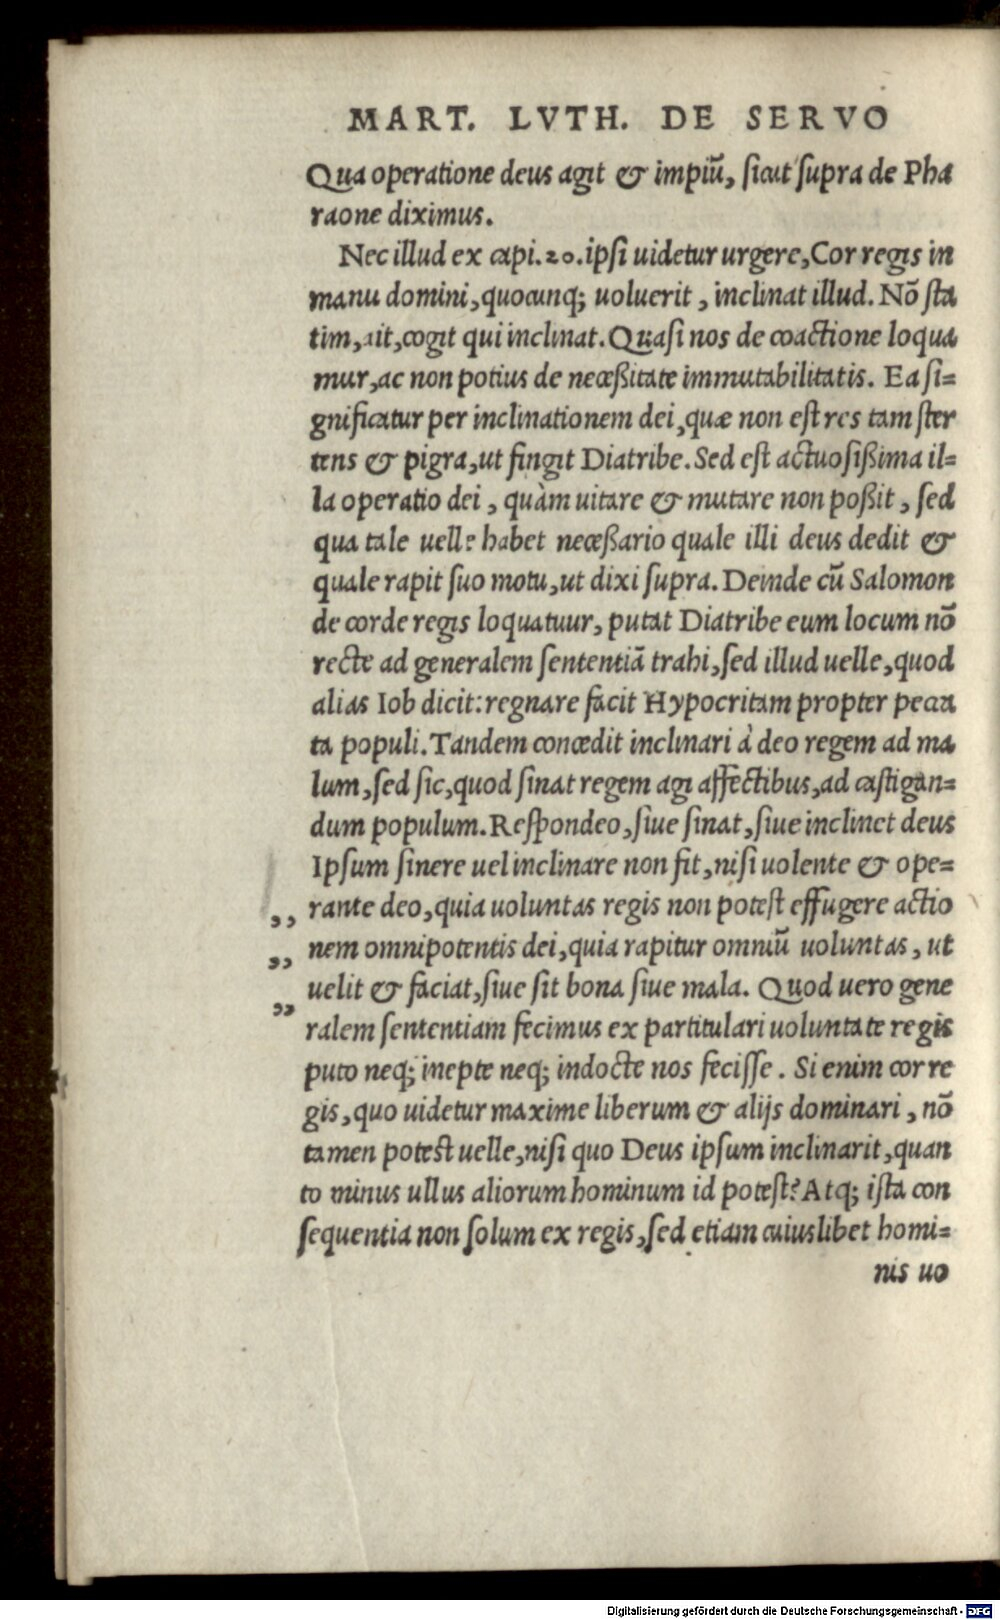 MART. LVTH. DE SERVO
Qua operatione deus agit & impiũ, ſicut ſupra de Pha
raone diximus.
Nec illud ex capi. 20. ipſi uidetur urgere, Cor regis in
manu domini, quocunq; uoluerit, inclinat illud. Nõ ſta
tim, ait, cogit qui inclinat. Quaſi nos de coactione loqua
mur, ac non potius de neceßitate immutabilitatis. Ea ſi=
gnificatur per inclinationem dei, quæ non eſt res tam ſter
tens & pigra, ut fingit Diatribe. Sed eſt actuoſißima il=
la operatio dei, quàm uitare & mutare non poßit, ſed
qua tale uelle habet neceßario quale illi deus dedit &
quale rapit ſuo motu, ut dixi ſupra. Deinde cũ Salomon
de corde regis loquatuur, putat Diatribe eum locum nõ
recte ad generalem ſententiã trahi, ſed illud uelle, quod
alias Iob dicit: regnare facit Hypocritam propter pecca
ta populi. Tandem concedit inclinari à deo regem ad ma
lum, ſed ſic, quod ſinat regem agi affectibus, ad caſtigan=
dum populum. Reſpondeo, ſiue ſinat, ſiue inclinet deus
Ipſum ſinere uel inclinare non fit, niſi uolente & ope=
„ rante deo, quia uoluntas regis non poteſt effugere actio
„ nem omnipotentis dei, quia rapitur omniũ uoluntas, ut
„ uelit & faciat, ſiue ſit bona ſiue mala. Quod uero gene
ralem ſententiam fecimus ex partitulari uoluntate regis
puto neq; inepte neq; indocte nos feciſſe. Si enim cor re
gis, quo uidetur maxime liberum & alijs dominari, nõ
tamen poteſt uelle, niſi quo Deus ipſum inclinarit, quan
to minus ullus aliorum hominum id poteſt? Atq; iſta con
ſequentia non ſolum ex regis, ſed etiam cuiuslibet homi=
nis uo
Digitalisierung gefördert durch die Deutsche Forschungsgemeinschaft - DFG